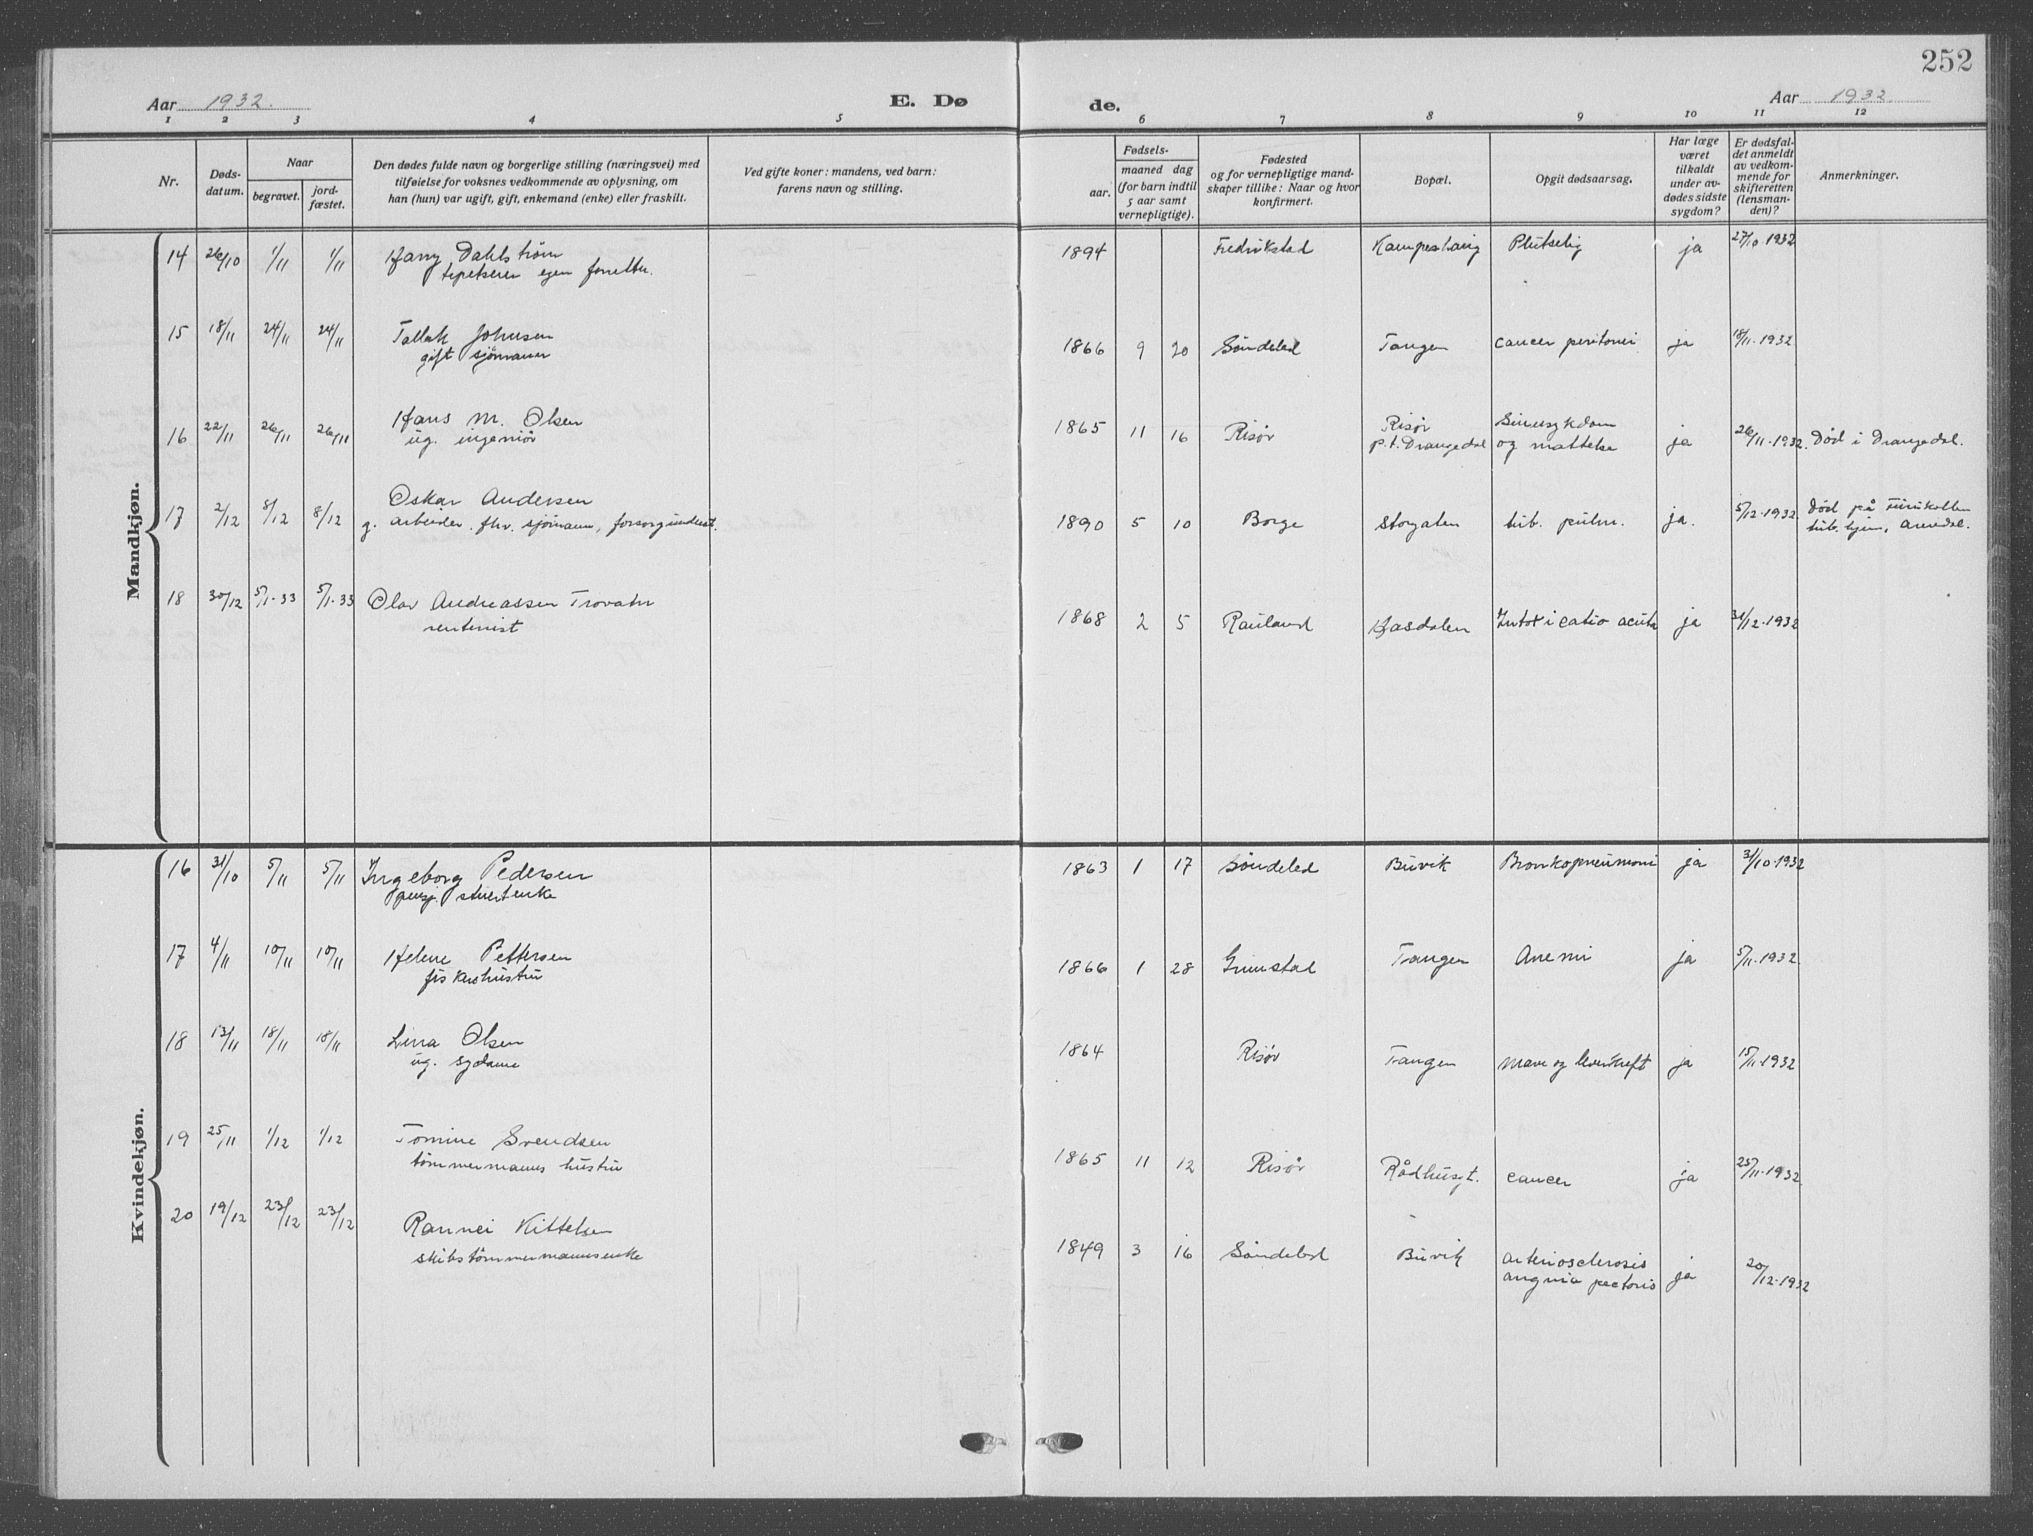 252
Aar 1932.
E. Dø
de.
Aar 1932.
1 2 3 4 5 6 7 8 9 10 11 12
Nr.
Døds-
datum.
Naar
begravet.
jord-
fæstet.
Den dødes fulde navn og borgerlige stilling (næringsvei) med
tilføielse for voksnes vedkommende av oplysning, om
han (hun) var ugift, gift, enkemand (enke) eller fraskilt.
Ved gifte koner: mandens, ved barn:
farens navn og stilling.
Fødsels-
aar.
maaned dag
(for barn indtil
5 aar samt
vernepligtige).
Fødested
og for vernepligtige mand-
skaper tillike: Naar og hvor
konfirmert.
Bopæl.
Opgit dødsaarsag.
Har læge
været
tilkaldt
under av-
dødes sidste
sygdom?
Er dødsfal-
det anmeldt
av vedkom-
mende for
skifteretten
(lensman-
den)?
Anmerkninger.
Mandkjøn.
14 26/10 1/11 1/11 Harry Dahlstrøm 1894 Fredrikstad Kampeshaug Plutselig ja 27/10-1932
tapetserer egen forretn.
15 18/11 24/11 24/11 Tallak Johnsen 1866 9 20 Søndeled Tangen cancer peritonei ja 18/11-1932
gift sjømann
16 22/11 26/11 26/11 Hans M. Olsen 1865 11 16 Risør Risør Sinnsykdom ja 26/11-1932. Død i Drangedal.
ug. ingeniør p.t. Drangedal og mattelse
17 2/12 8/12 8/12 Oskar Andersen 1890 5 10 Borge Storgaten tub. pulm. ja. 5/12-1932 Død på
g. arbeider. fhv. sjømann, forsorgunderst. tub. hjem, Arendal.
18 30/12 5/1-33 5/1-33 Olav Andreassen Trovatn 1868 2 5 Rauland Hasdalen Intoxicatio acuta ja 31/12-1932
rentenist
Kvindekjøn.
16 31/10 5/11 5/11 Ingeborg Pedersen 1863 1 17 Søndeled Buvik Bronkopneumoni ja 31/10-1932
pensj. enke
17 4/11 10/11 10/11 Helene Pettersen 1866 1 28 Grimstad Tangen Anemi ja 5/11-1932.
fiskerhustru
18 13/11 18/11 18/11 Lina Olsen 1864 Risør Tangen Mave og leverkreft ja 15/11-1932
ug. sydame
19 25/11 1/12 1/12 Tomine Svendsen 1865 11 12 Risør Rådhusgt. cancer ja 25/11-1932.
tømmermanns hustru
20 19/12 23/12 23/12 Rannei Kittelsen 1849 3 16 Søndeled Buvik arteriosclerosis ja 20/12-1932
skibstømmermannsenke angina pectoris